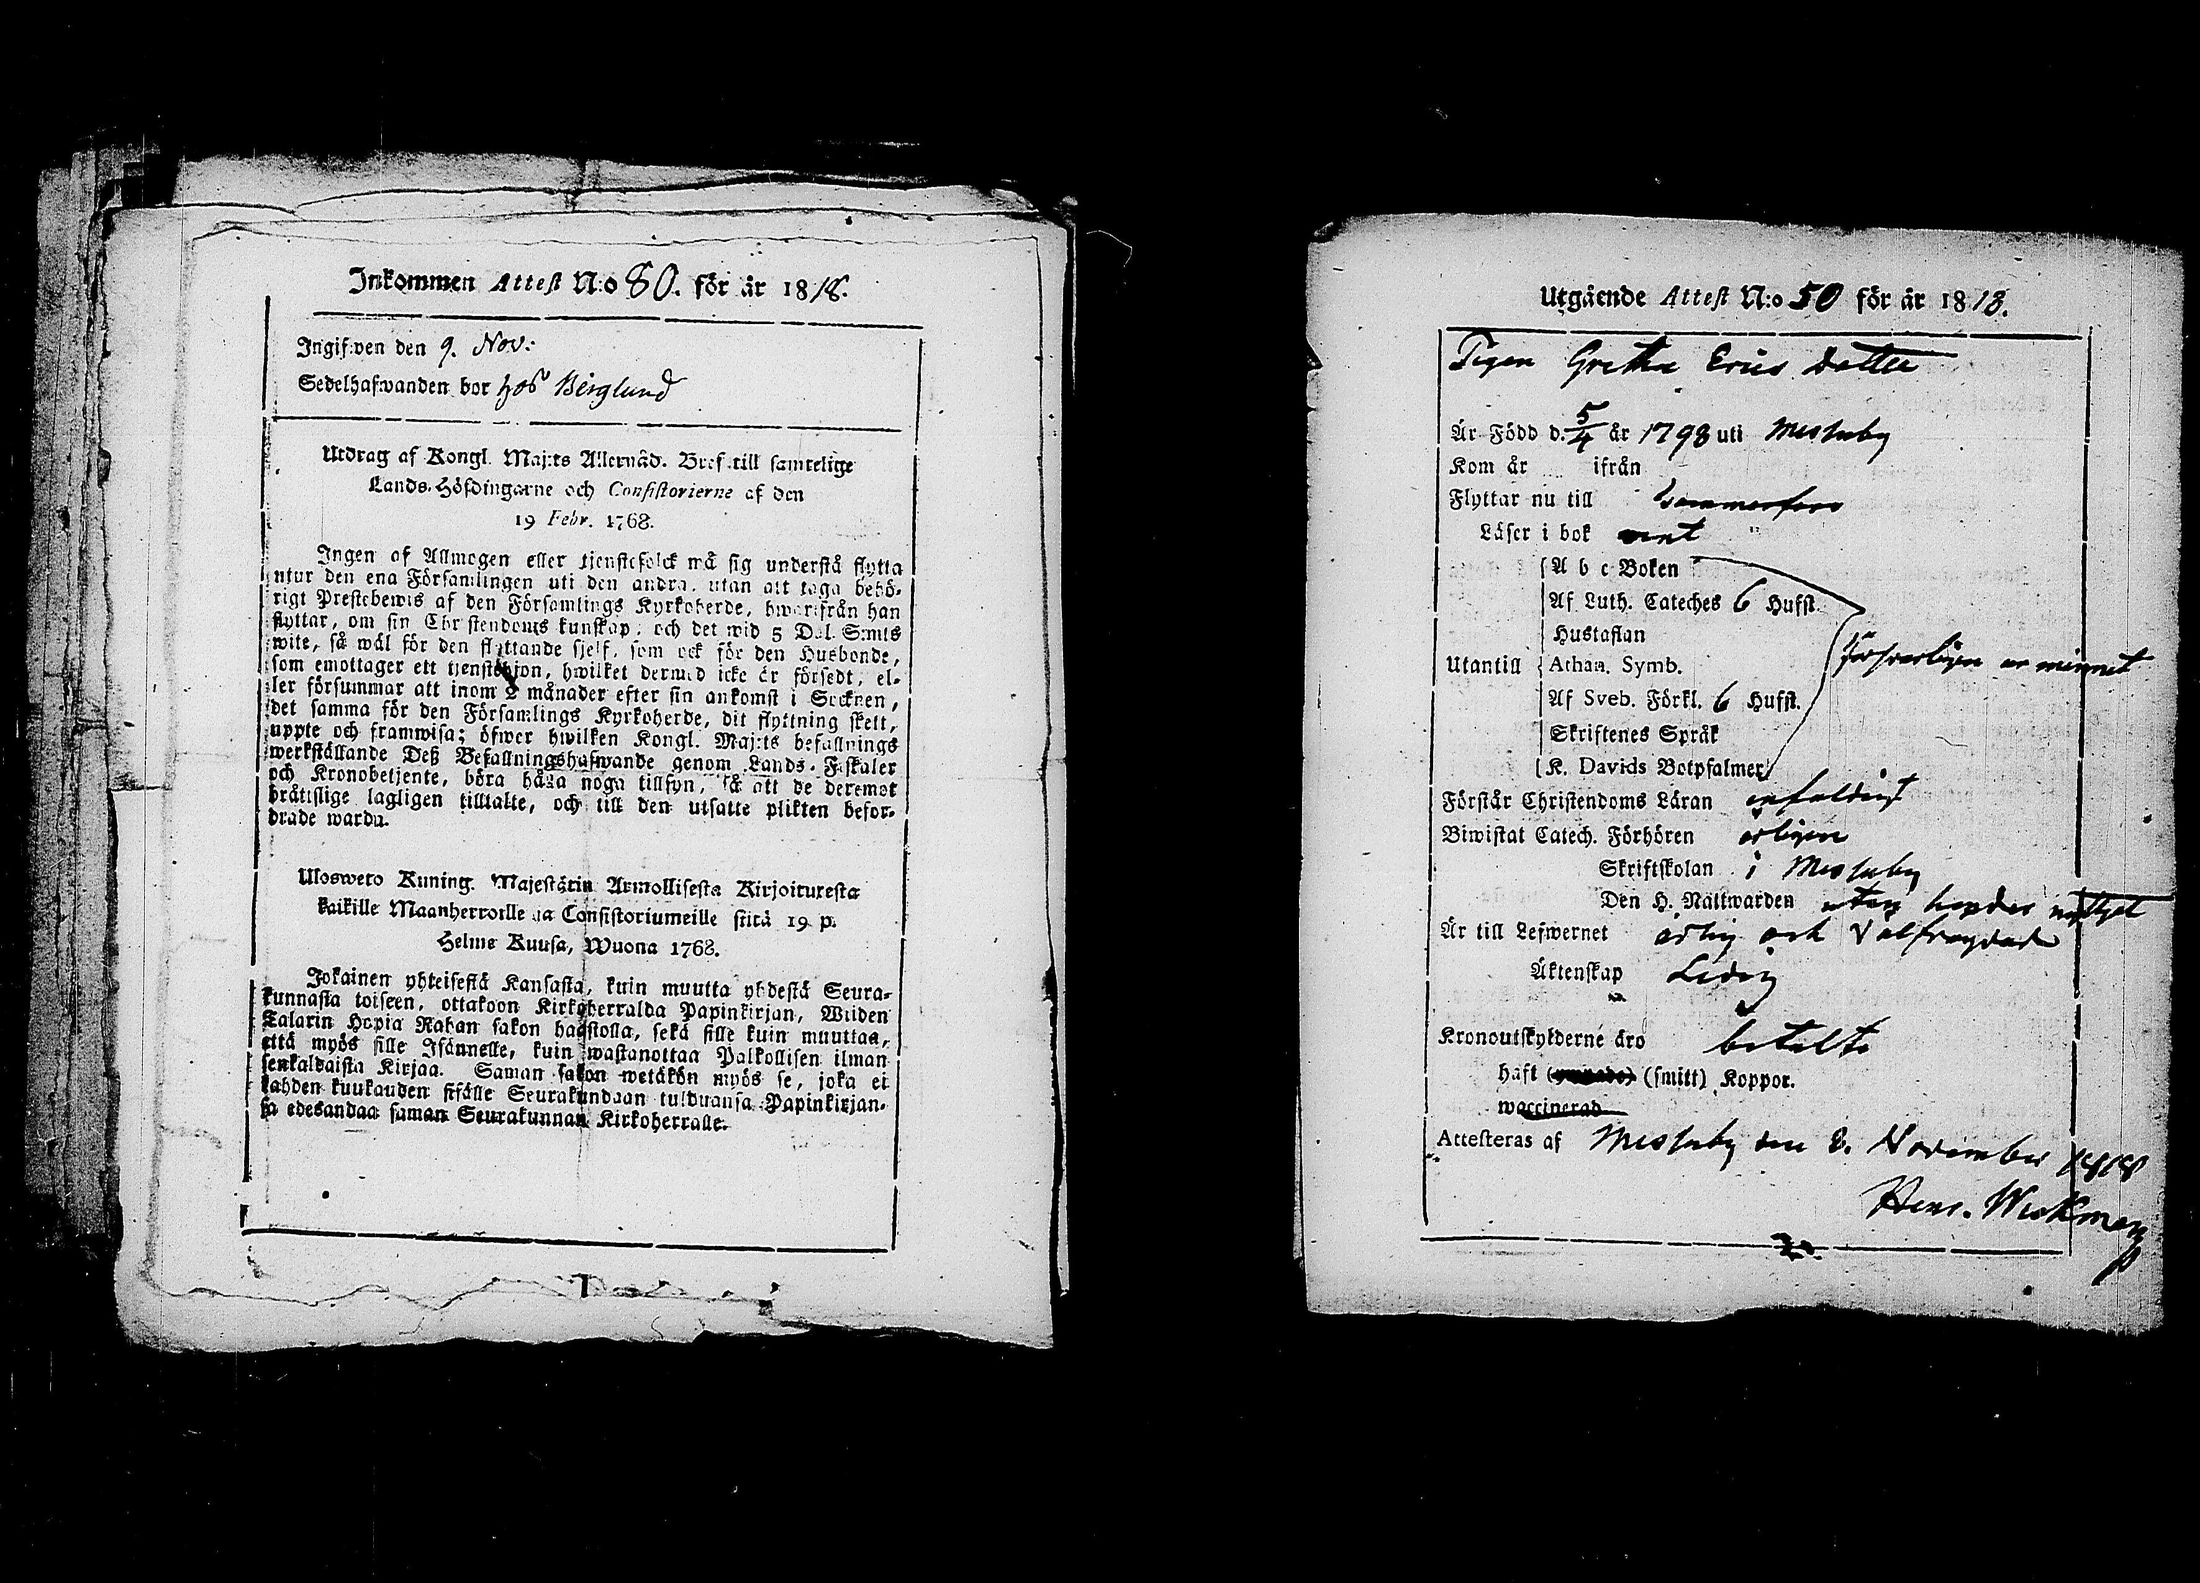 Inkommen Attest N:o 80. för år 1818.
Ingifwen den 9. Nov:
Sedelhafwanden bor hos Berglund
Utdrag af Kongl. Maj:ts Allernåd. Bref till samtelige
Lands-Höfdingarne och Consistorierne af den
19 Febr. 1768.
Ingen af Allmogen eller tjenstefolck må sig understå flytta
utur den ena Församlingen uti den andra, utan att taga behö-
rigt Prestebewis af den Församlings Kyrkoherde, hwarifrån han
flyttar, om sin Christendoms kunskap, och det wid 5 Dal. S:mts
wite, så wäl för den flyttande sjelf, som ock för den Husbonde,
som emottager ett tjenstehjon, hwilket dermed icke är försedt, el-
ler försummar att inom 2 månader efter sin ankomst i Socknen,
det samma för den Församlings Kyrkoherde, dit flyttning skett,
uppte och framwisa; öfwer hwilken Kongl. Maj:ts befallnings
werkställande Deß Befallningshafwande genom Lands-Fiskaler
och Kronobetjente, böra hålla noga tillsyn, så att de deremot
bråttslige lagligen tilltalte, och till den utsatte plikten befor-
drade warda.
Uloswero Kuning. Majestätin Armollisesta Kirjoituresta
kaikille Maanherroille ja Consistoriumeille siitä 19 p.
Helme Kuusa, Wuona 1768.
Jokainen yhteisestä Kansasta, kuin muutta yhdestä Seura-
kunnasta toiseen, ottakoon Kirkoherralda Papinkirjan, Wiiden
Talarin Hopia Rahan sakon haastolla, sekä sille kuin muuttaa,
että myös sille Isännelle, kuin wastanottaa Palkollisen ilman
senkaldaista Kirjaa. Saman sakon wetäkön myös se, joka ei
kahden kuukauden sisälle Seurakundaan tulduansa Papinkirjan-
sa edesandaa saman Seurakunnan Kirkoherralle.
Utgående Attest N:o 50 för år 1818.
Pigan Greta Erics dotter
Är Född d. 5/4 år 1798 uti Messuby
Kom år ifrån
Flyttar nu till Tammerfors
Läser i bok rent
A b c Boken
Af Luth. Cateches 6 Hufst.
Hustaflan
Utantill Athan. Symb. försvarligen ur minnet
Af Sveb. Förkl. 6 Hufst.
Skriftenes Språk
K. Davids Botpsalmer
Förstår Christendoms Läran enfaldigt
Biwistat Catech. Förhören årligen
Skriftskolan i Messuby
Den H. Nattwarden nyttjat
Är till Lefwernet ärlig och välfrägdad
Äktenskap Ledig
Kronoutskylderne äro betalte
haft (smitt) Koppor.
waccinerad
Attesteras af Messuby den 8. November 1818
Henr. Wickman